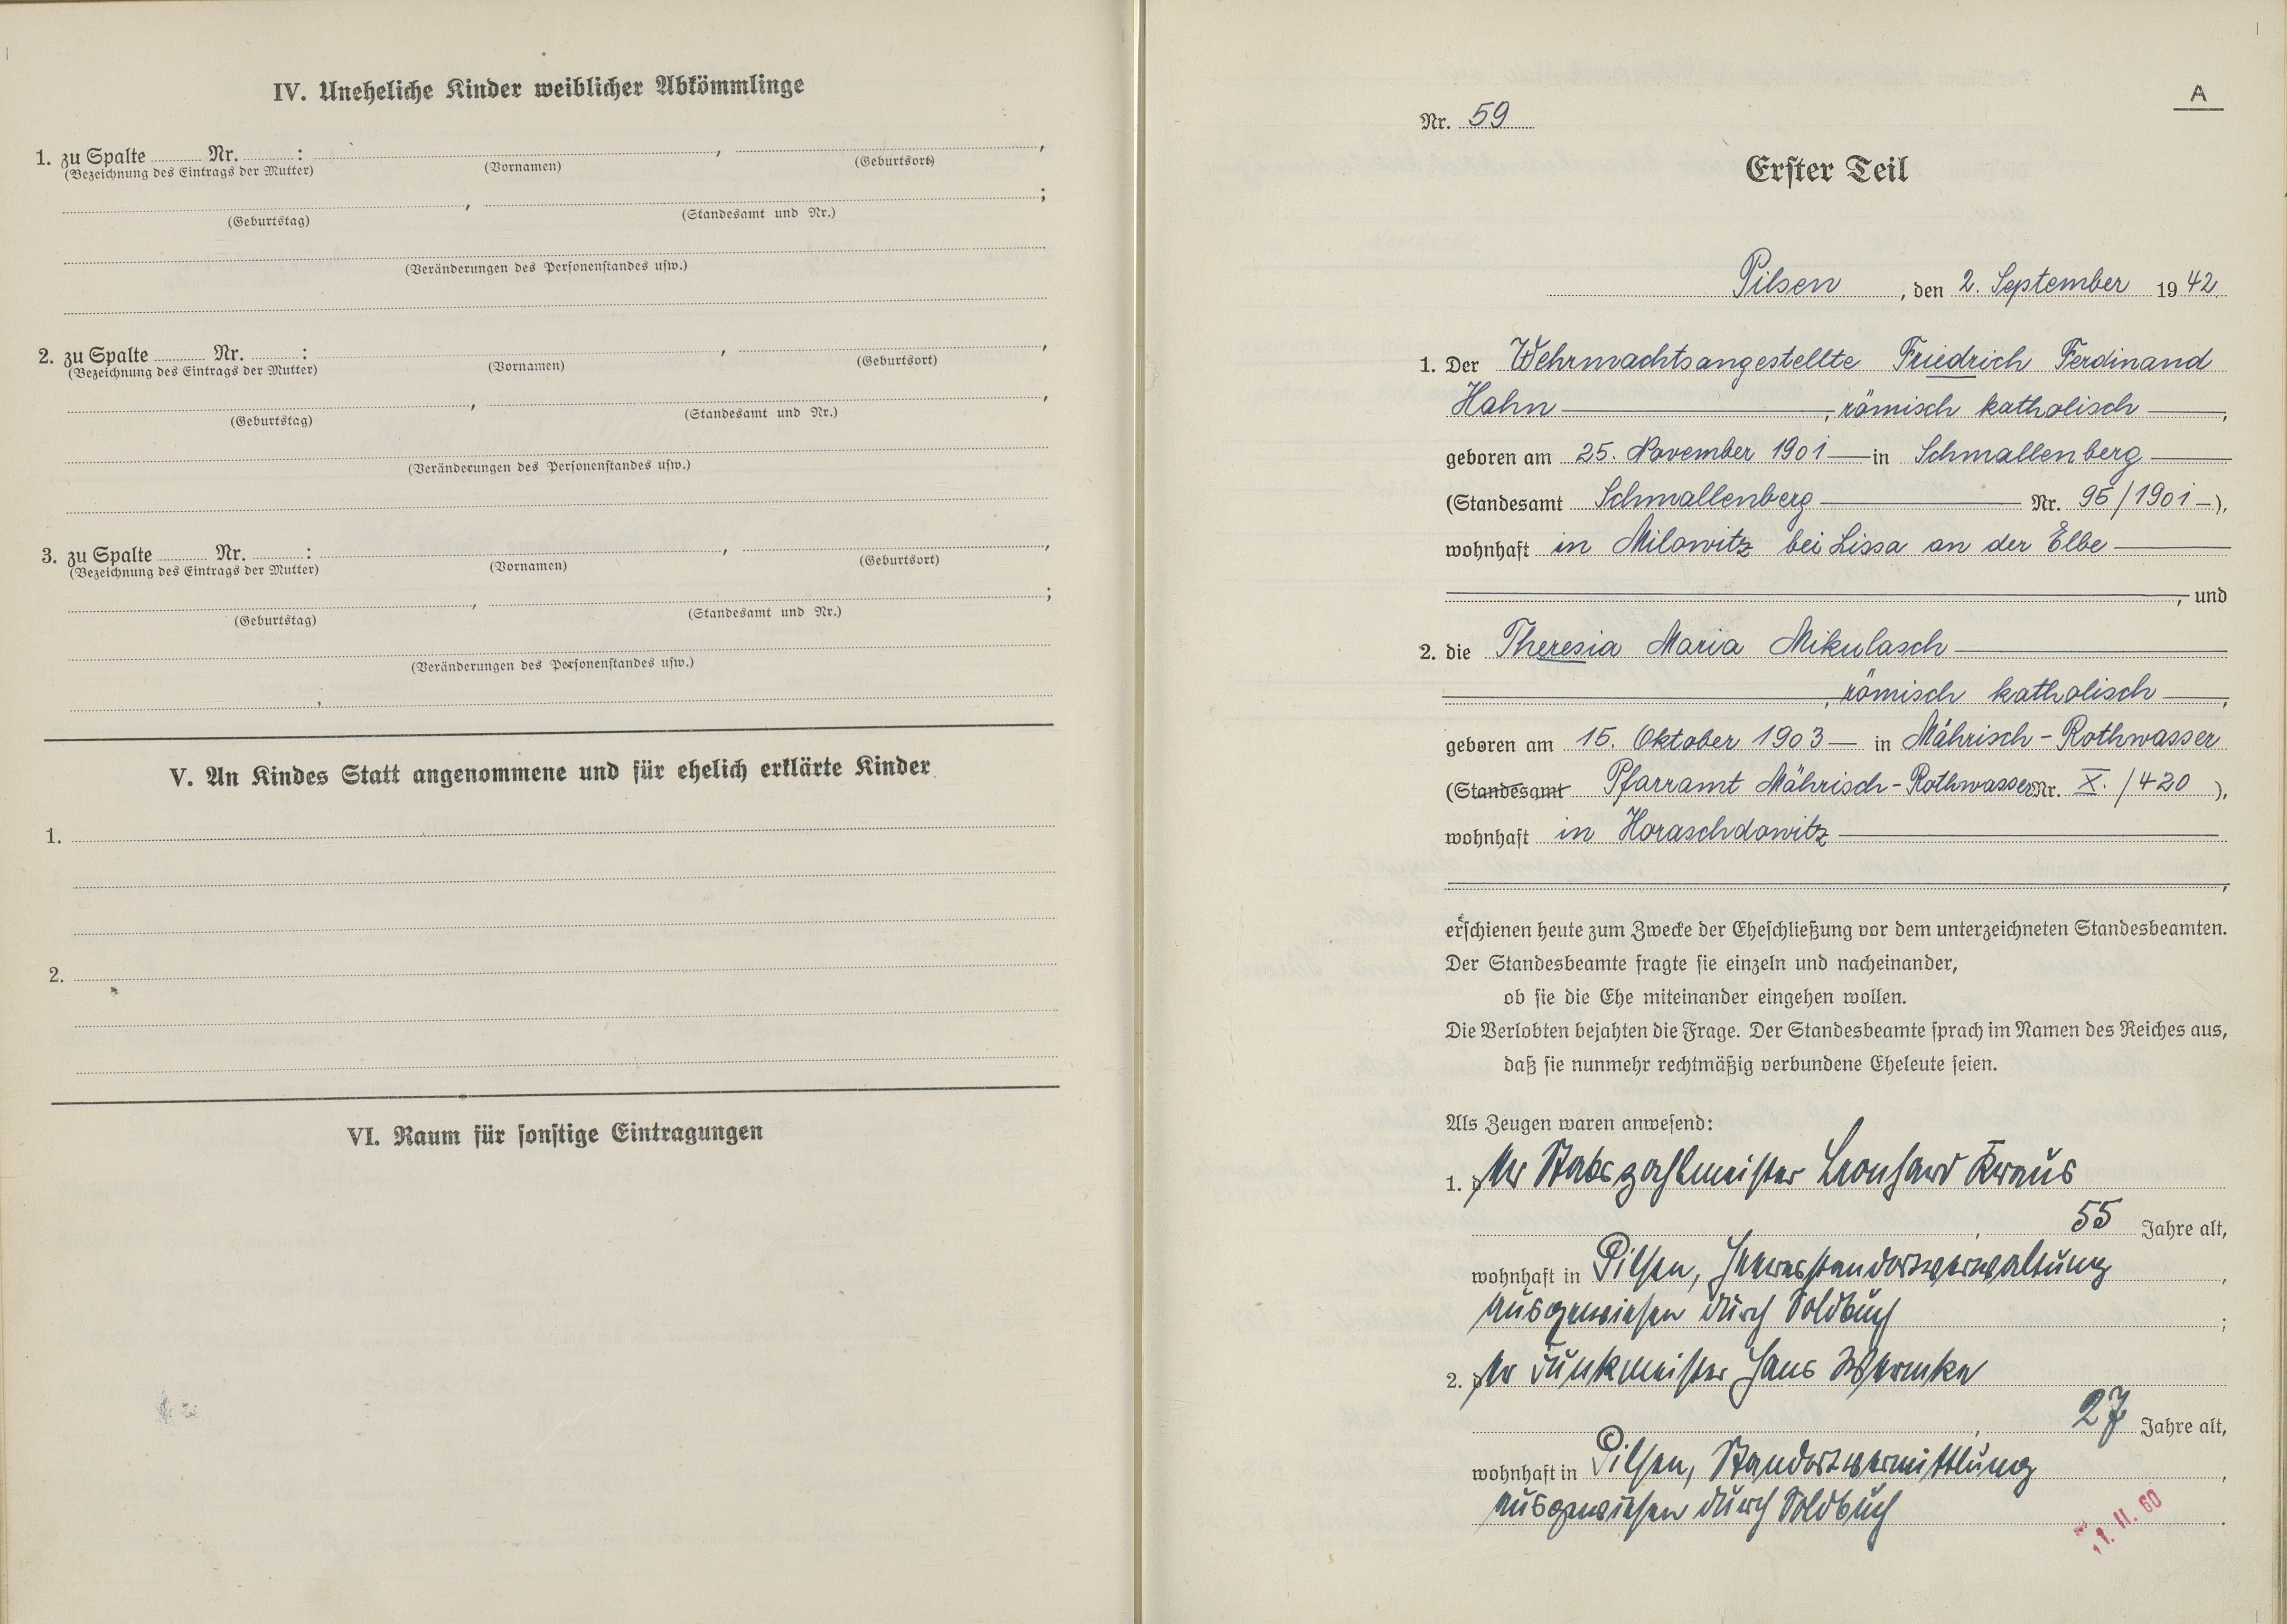 IV. Uneheliche Kinder weiblicher Abkömmlinge
1. zu Spalte ........ Nr. ........ : , ,
(Bezeichnung des Eintrags der Mutter) (Vornamen) (Geburtsort)
, ;
(Geburtstag) (Standesamt und Nr.)
(Veränderungen des Personenstandes usw.)
2. zu Spalte ........ Nr. ........ : , ,
(Bezeichnung des Eintrags der Mutter) (Vornamen) (Geburtsort)
, ,
(Geburtstag) (Standesamt und Nr.)
(Veränderungen des Personenstandes usw.)
3. zu Spalte ........ Nr. ........ : , ,
(Bezeichnung des Eintrags der Mutter) (Vornamen) (Geburtsort)
, ;
(Geburtstag) (Standesamt und Nr.)
(Veränderungen des Personenstandes usw.)
V. An Kindes Statt angenommene und für ehelich erklärte Kinder
1.
2.
VI. Raum für sonstige Eintragungen
A
Nr. 59
Erster Teil
Pilsen , den 2. September 1942
1. Der Wehrmachtsangestellte Friedrich Ferdinand
Hahn , römisch katholisch ,
geboren am 25. November 1901 in Schmallenberg
(Standesamt Schmallenberg Nr. 95/1901 ),
wohnhaft in Milowitz bei Lissa an der Elbe
, und
2. die Theresia Maria Mikulasch
, römisch katholisch ,
geboren am 15. Oktober 1903 in Mährisch-Rothwasser
(Standesamt Pfarramt Mährisch-Rothwasser Nr. X./420 ),
wohnhaft in Horaschdowitz
,
erschienen heute zum Zwecke der Eheschließung vor dem unterzeichneten Standesbeamten.
Der Standesbeamte fragte sie einzeln und nacheinander,
ob sie die Ehe miteinander eingehen wollen.
Die Verlobten bejahten die Frage. Der Standesbeamte sprach im Namen des Reiches aus,
daß sie nunmehr rechtmäßig verbundene Eheleute seien.
Als Zeugen waren anwesend:
1. der Stabszahlmeister Leonhard Kraus
, 55 Jahre alt,
wohnhaft in Pilsen, Heeresstandortverwaltung ,
ausgewiesen durch Soldbuch ;
2. der Funkmeister Hans Wermke
, 27 Jahre alt,
wohnhaft in Pilsen, Standortvermittlung ,
ausgewiesen durch Soldbuch .
11. 11. 60